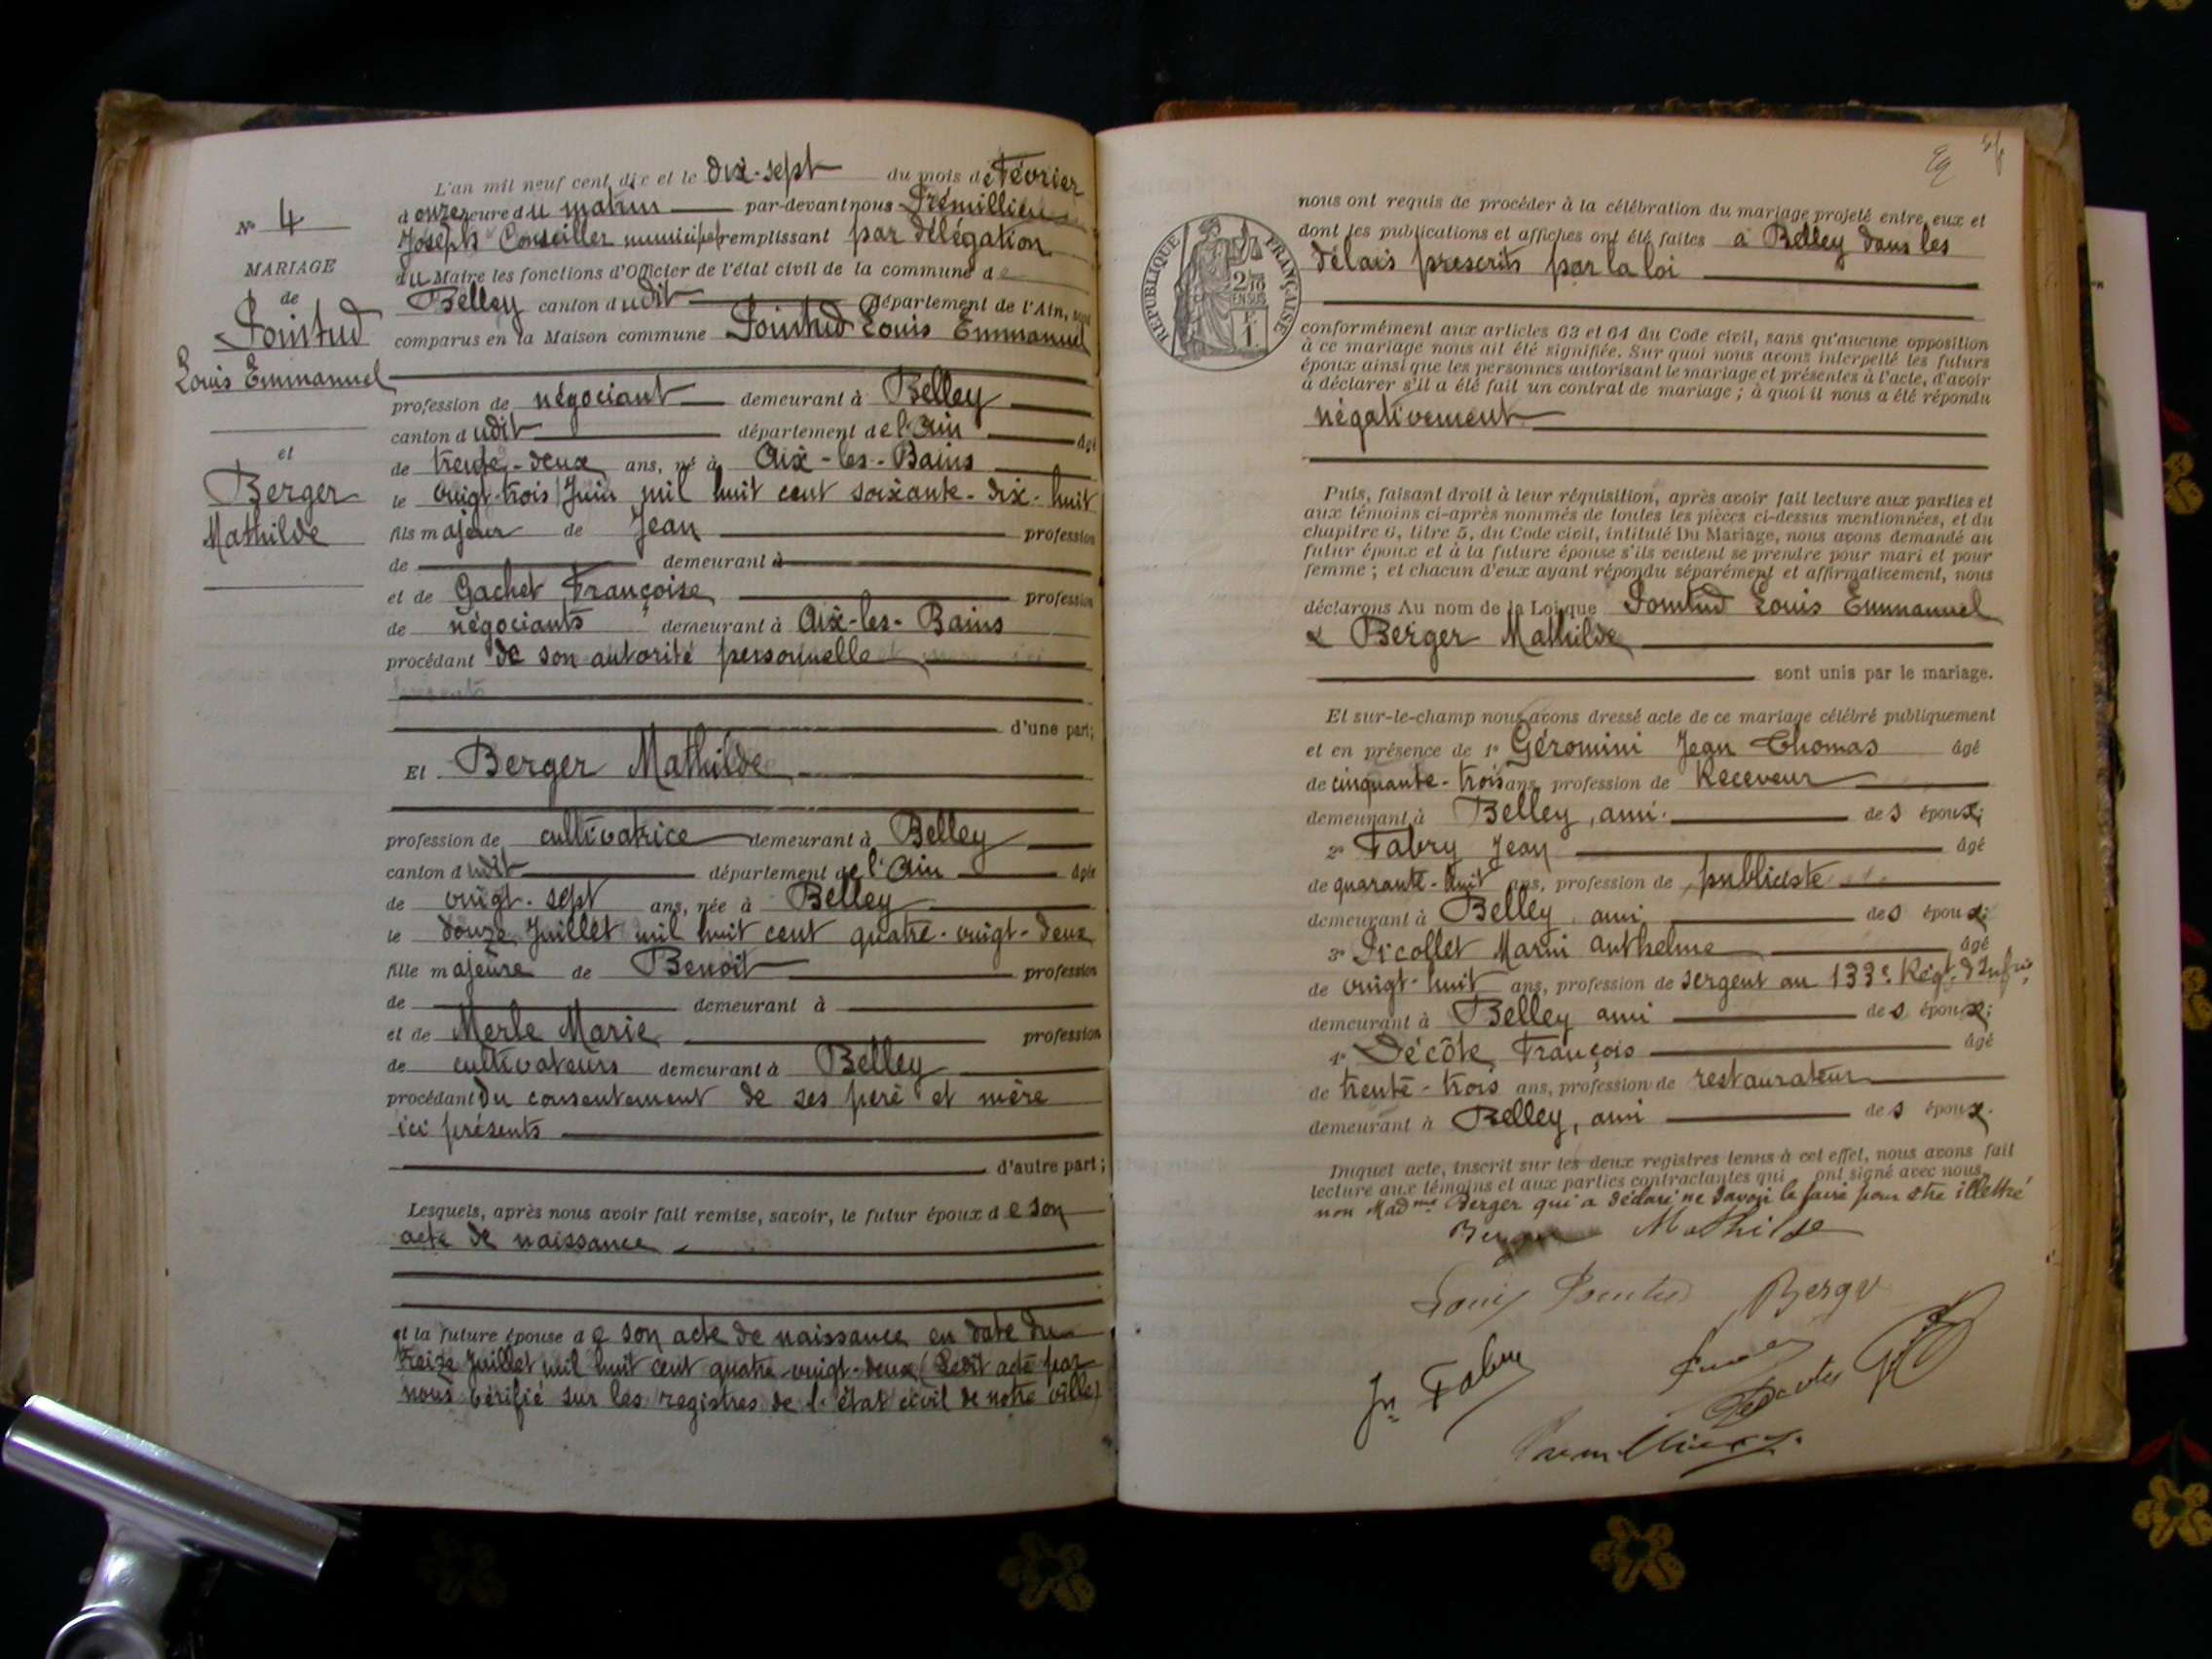 N° 4
MARIAGE
de
Pointud
Louis Emmanuel
et
Berger
Mathilde
L'an mil neuf cent dix et le dix-sept du mois de Février
à onze heure du matin par-devant nous Prémillieu
Joseph Conseiller municipal remplissant par délégation
du Maire les fonctions d'Officier de l'état civil de la commune de
Belley canton dudit département de l'Ain, sont
comparus en la Maison commune Pointud Louis Emmanuel
profession de négociant demeurant à Belley
canton dudit département de l'Ain âgé
de trente-deux ans, né à Aix-les-Bains
le vingt-trois Juin mil huit cent soixante-dix-huit
fils majeur de Jean profession
de demeurant à
et de Gachet Françoise profession
de négociants demeurant à Aix-les-Bains
procédant de son autorité personnelle
d'une part;
Et Berger Mathilde
profession de cultivatrice demeurant à Belley
canton dudit département de l'Ain âgée
de vingt-sept ans, née à Belley
le douze Juillet mil huit cent quatre-vingt-deux
fille majeure de Benoît profession
de demeurant à
et de Merle Marie profession
de cultivateurs demeurant à Belley
procédant du consentement de ses père et mère
ici présents
d'autre part;
Lesquels, après nous avoir fait remise, savoir, le futur époux de son
acte de naissance
et la future épouse de son acte de naissance en date du
treize Juillet mil huit cent quatre-vingt-deux (Ledit acte par
nous vérifié sur les registres de l'état civil de notre ville)
RÉPUBLIQUE FRANÇAISE
2/10
EN SUS
F.
1.
nous ont requis de procéder à la célébration du mariage projeté entre eux et
dont les publications et affiches ont été faites à Belley dans les
délais prescrits par la loi
conformément aux articles 63 et 64 du Code civil, sans qu'aucune opposition
à ce mariage nous ait été signifiée. Sur quoi nous avons interpellé les futurs
époux ainsi que les personnes autorisant le mariage et présentes à l'acte, d'avoir
à déclarer s'il a été fait un contrat de mariage; à quoi il nous a été répondu
négativement
Puis, faisant droit à leur réquisition, après avoir fait lecture aux parties et
aux témoins ci-après nommés de toutes les pièces ci-dessus mentionnées, et du
chapitre 6, titre 5, du Code civil, intitulé Du Mariage, nous avons demandé au
futur époux et à la future épouse s'ils veulent se prendre pour mari et pour
femme; et chacun d'eux ayant répondu séparément et affirmativement, nous
déclarons Au nom de la Loi que Pointud Louis Emmanuel
& Berger Mathilde
sont unis par le mariage.
Et sur-le-champ nous avons dressé acte de ce mariage célébré publiquement
et en présence de 1° Géromini Jean Thomas âgé
de cinquante-trois ans, profession de Receveur
demeurant à Belley, ami des époux;
2° Fabry Jean âgé
de quarante-huit ans, profession de publiciste
demeurant à Belley, ami des époux;
3° Picollet Marin Anthelme âgé
de vingt-huit ans, profession de sergent au 133e Régt d'Infrie
demeurant à Belley ami des époux;
4° Décôte François âgé
de trente-trois ans, profession de restaurateur
demeurant à Belley, ami des époux.
Duquel acte, inscrit sur les deux registres tenus à cet effet, nous avons fait
lecture aux témoins et aux parties contractantes qui ont signé avec nous
non Madme Berger qui a déclaré ne savoir le faire pour être illettré
Berger Mathilde
Louis Pointud Berger
Jn Fabry
Prémillieu